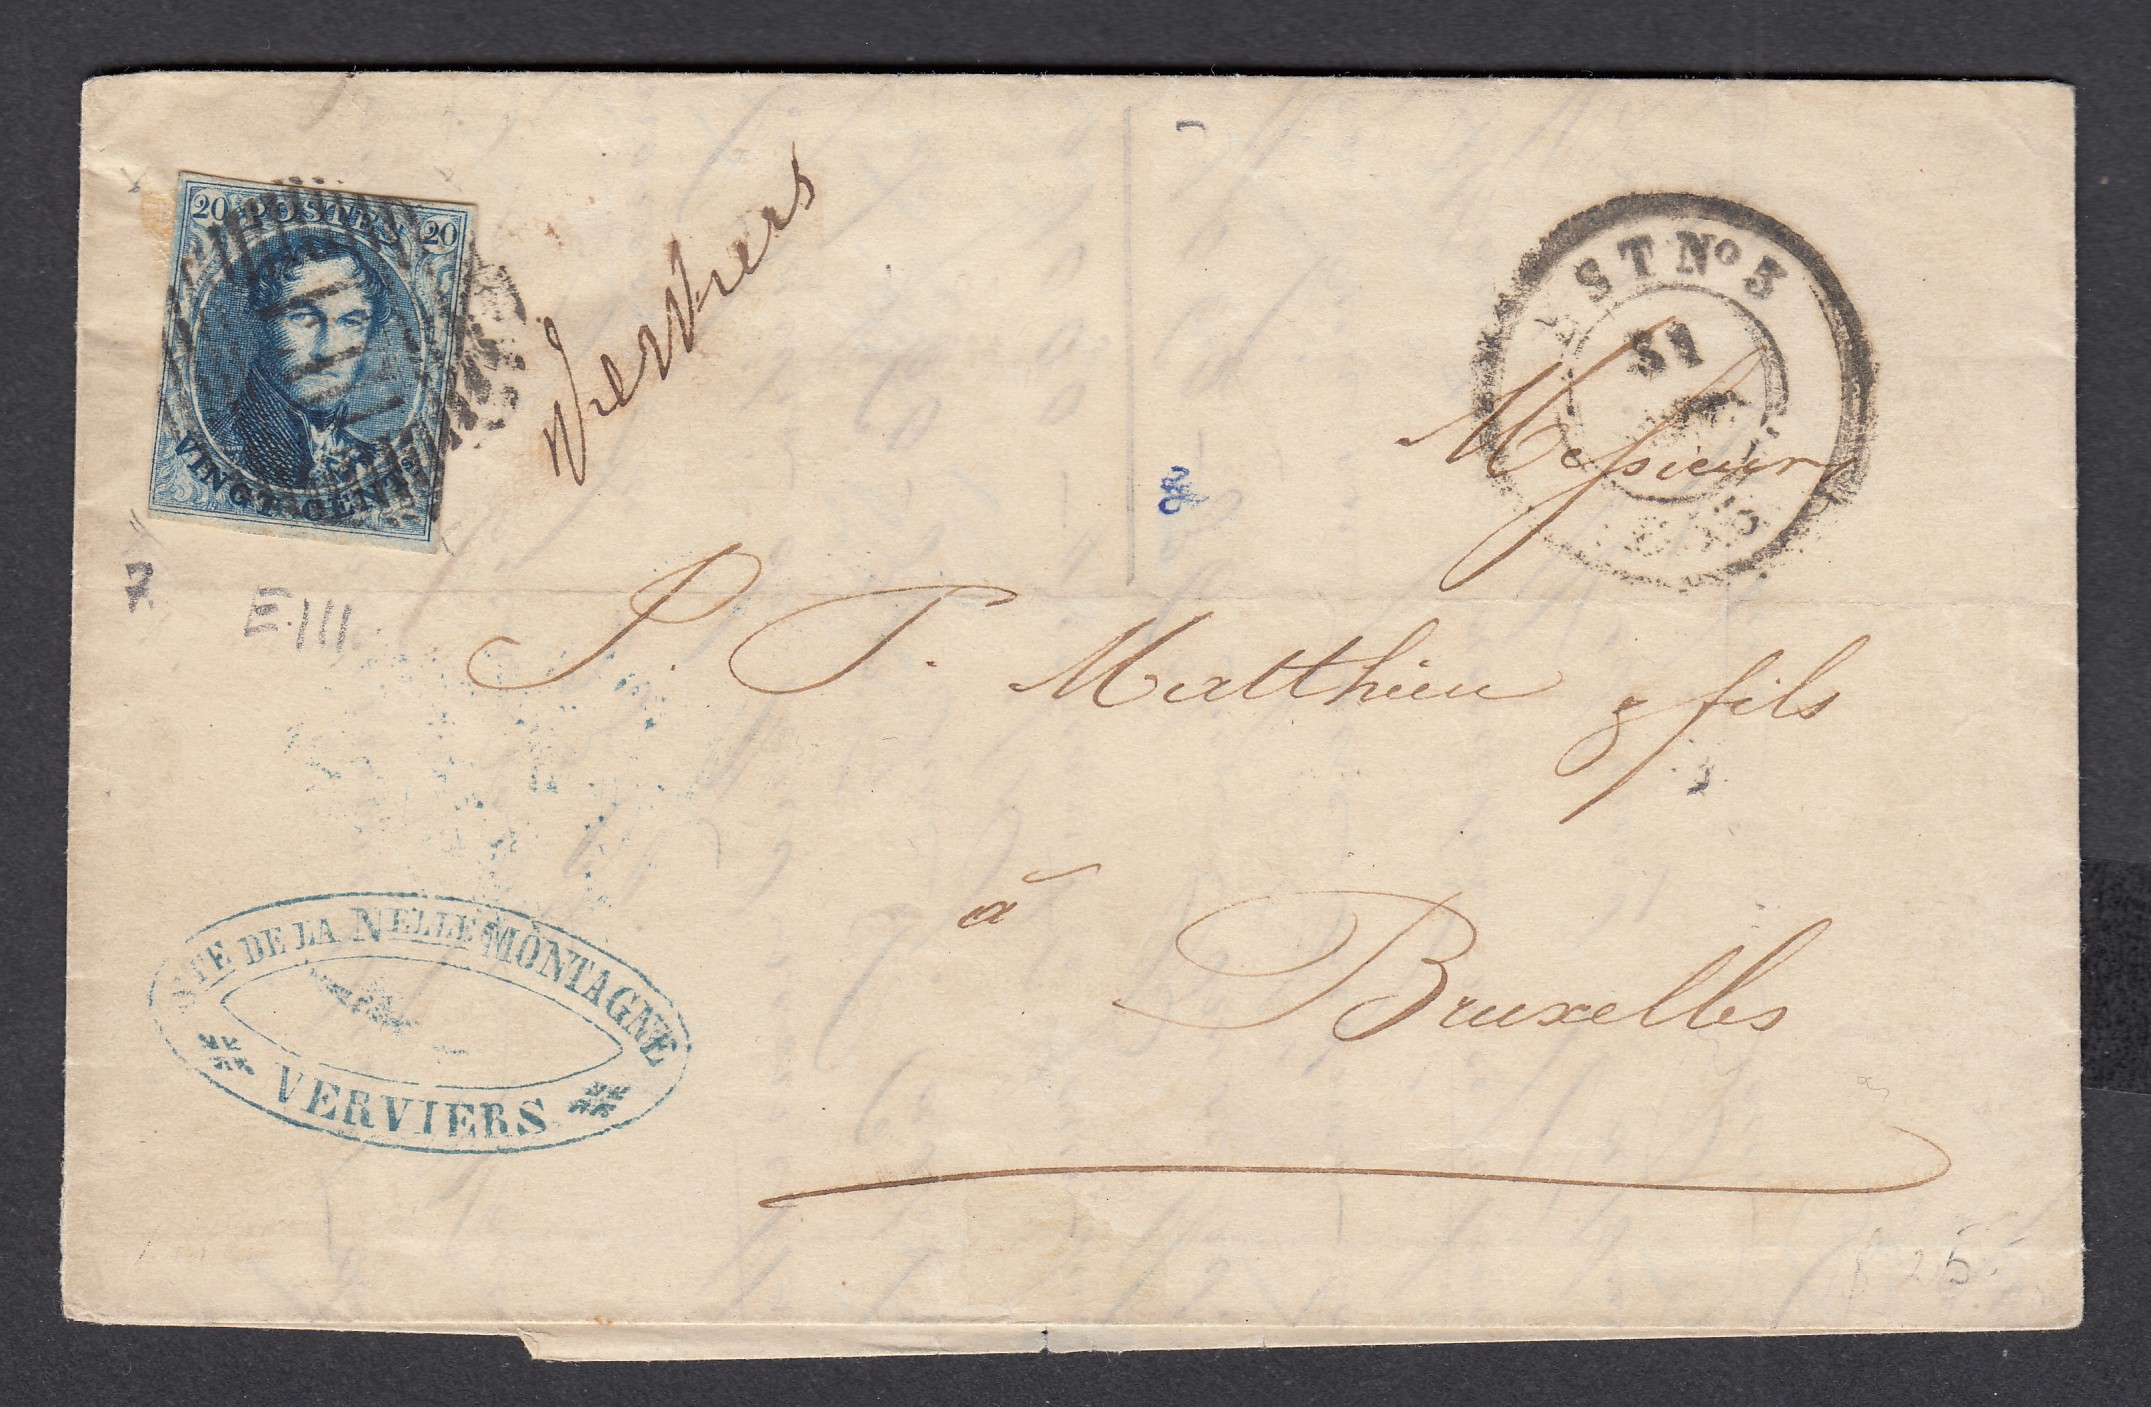 20 POSTES 20
VINGT CENT
Verviers
EST No 3
31
Messieurs
E.III
P. T. Matthieu & fils
à
Bruxelles
STE DE LA NELLE MONTAGNE
VERVIERS
25